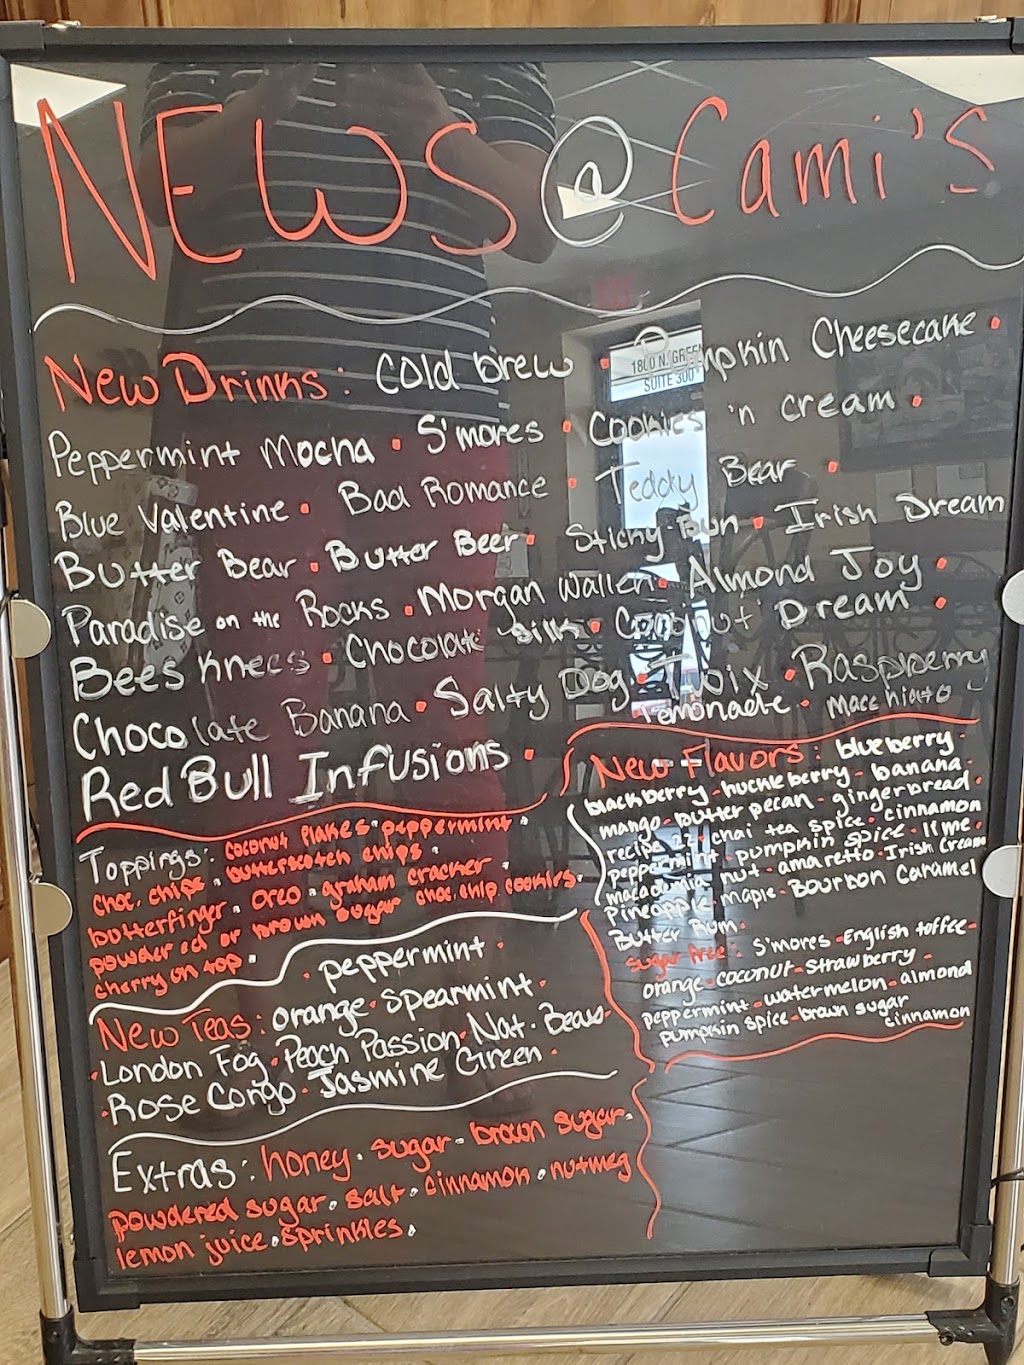 NEWS @ Cami's
New Drinks: Cold brew • Pumpkin Cheesecake •
Peppermint Mocha • S'mores • Cookies 'n cream •
Blue Valentine • Bad Romance • Teddy Bear •
Butter Bear • Butter Beer • Sticky Bun • Irish Dream
Paradise on the Rocks • Morgan Wallen • Almond Joy •
Bees Knees • Chocolate Silk • Coconut Dream •
Chocolate Banana • Salty Dog • Twix • Raspberry
Lemonade • Macchiato
Red Bull Infusions •
1800 N. GREEN
SUITE 300
Toppings: coconut flakes • peppermint •
choc. chips • butterscotch chips •
butterfinger • oreo • graham cracker
powdered or brown sugar • choc. chip cookies •
cherry on top •
• peppermint •
New Teas: orange • spearmint •
• London Fog • Peach Passion • Nat. Bears •
• Rose Congo • Jasmine Green •
Extras: honey • sugar • brown sugar •
powdered sugar • salt • cinnamon • nutmeg
lemon juice • sprinkles •
New Flavors: blueberry -
blackberry - huckleberry - banana -
mango - butter pecan - gingerbread -
recipe 22 • chai tea spice • cinnamon
peppermint • pumpkin spice • lime •
macadamia nut • amaretto • Irish Cream
Pineapple • maple • Bourbon Caramel
Butter Rum •
sugar free: S'mores - English toffee -
orange - coconut - strawberry -
peppermint - watermelon - almond
pumpkin spice - brown sugar
cinnamon